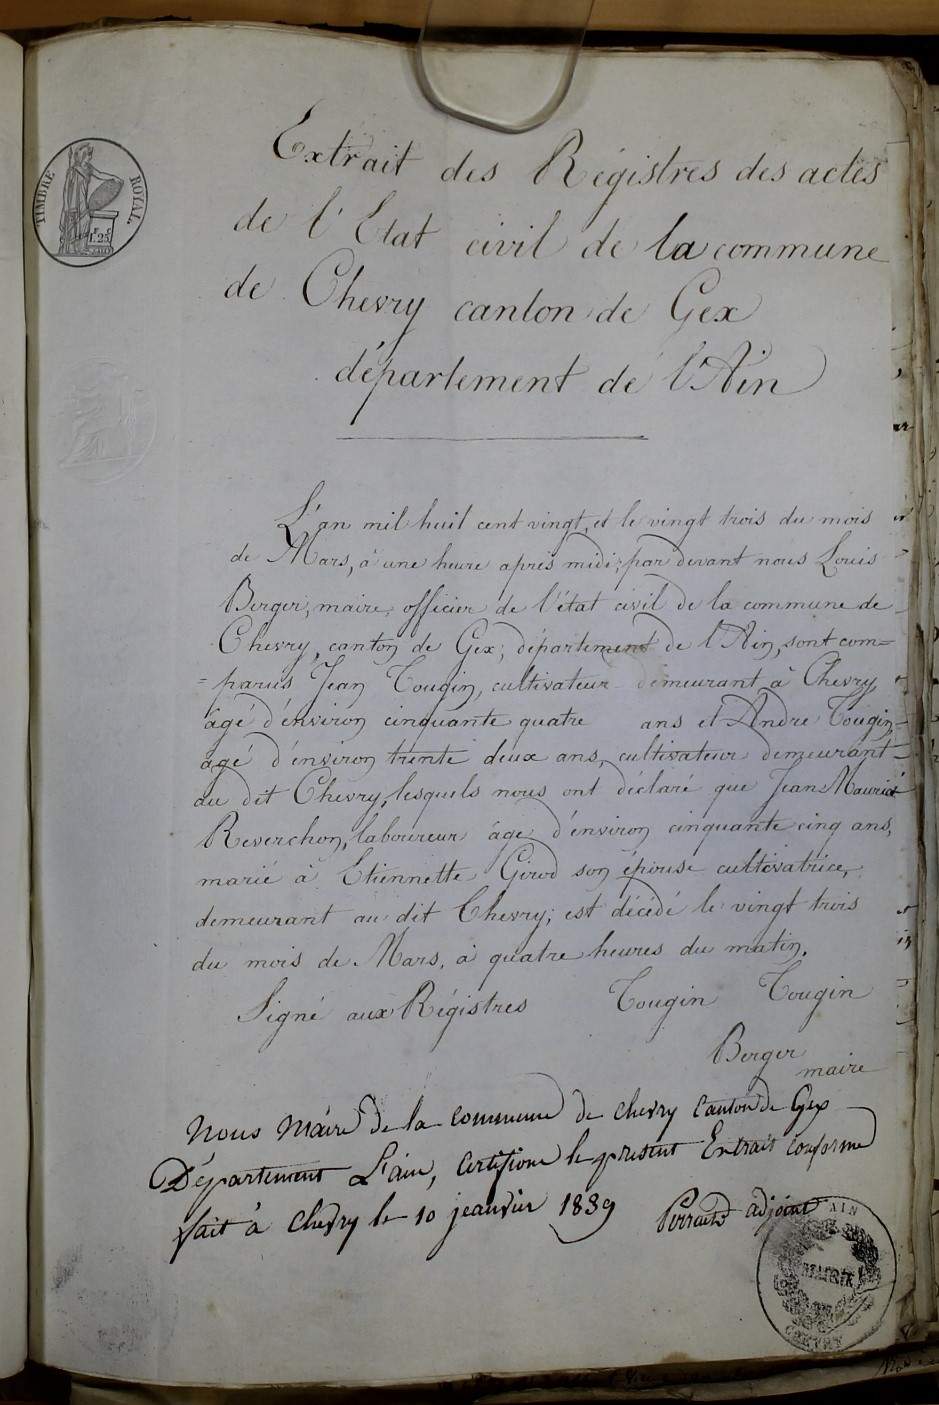 TIMBRE ROYAL.
1F 25C
Extrait des Régistres des actes
de l'Etat civil de la commune
de Chevry canton de Gex
département de l'Ain
L'an mil huit cent vingt, et le vingt trois du mois
de Mars, à une heure après midi; par devant nous Louis
Berger, maire, officier de l'état civil de la commune de
Chevry, canton de Gex, département de l'Ain, sont com=
=parus Jean Tougin, cultivateur demeurant à Chevry,
âgé d'environ cinquante quatre ans et André Tougin,
âgé d'environ trente deux ans, cultivateur demeurant
au dit Chevry, lesquels nous ont déclaré que Jean Maurice
Reverchon, laboureur âgé d'environ cinquante cinq ans,
marié à Etiennette Girod son épouse cultivatrice,
demeurant au dit Chevry; est décédé le vingt trois
du mois de Mars, à quatre heures du matin.
Signé aux Régistres Tougin Tougin
Berger
maire
Nous Maire de la commune de chevry Canton de Gex
Département L'ain, Certifions le présent Extrait conforme
fait à chevry le 10 jeanvier 1839 adjoint
AIN
MAIRIE
CHEVRY